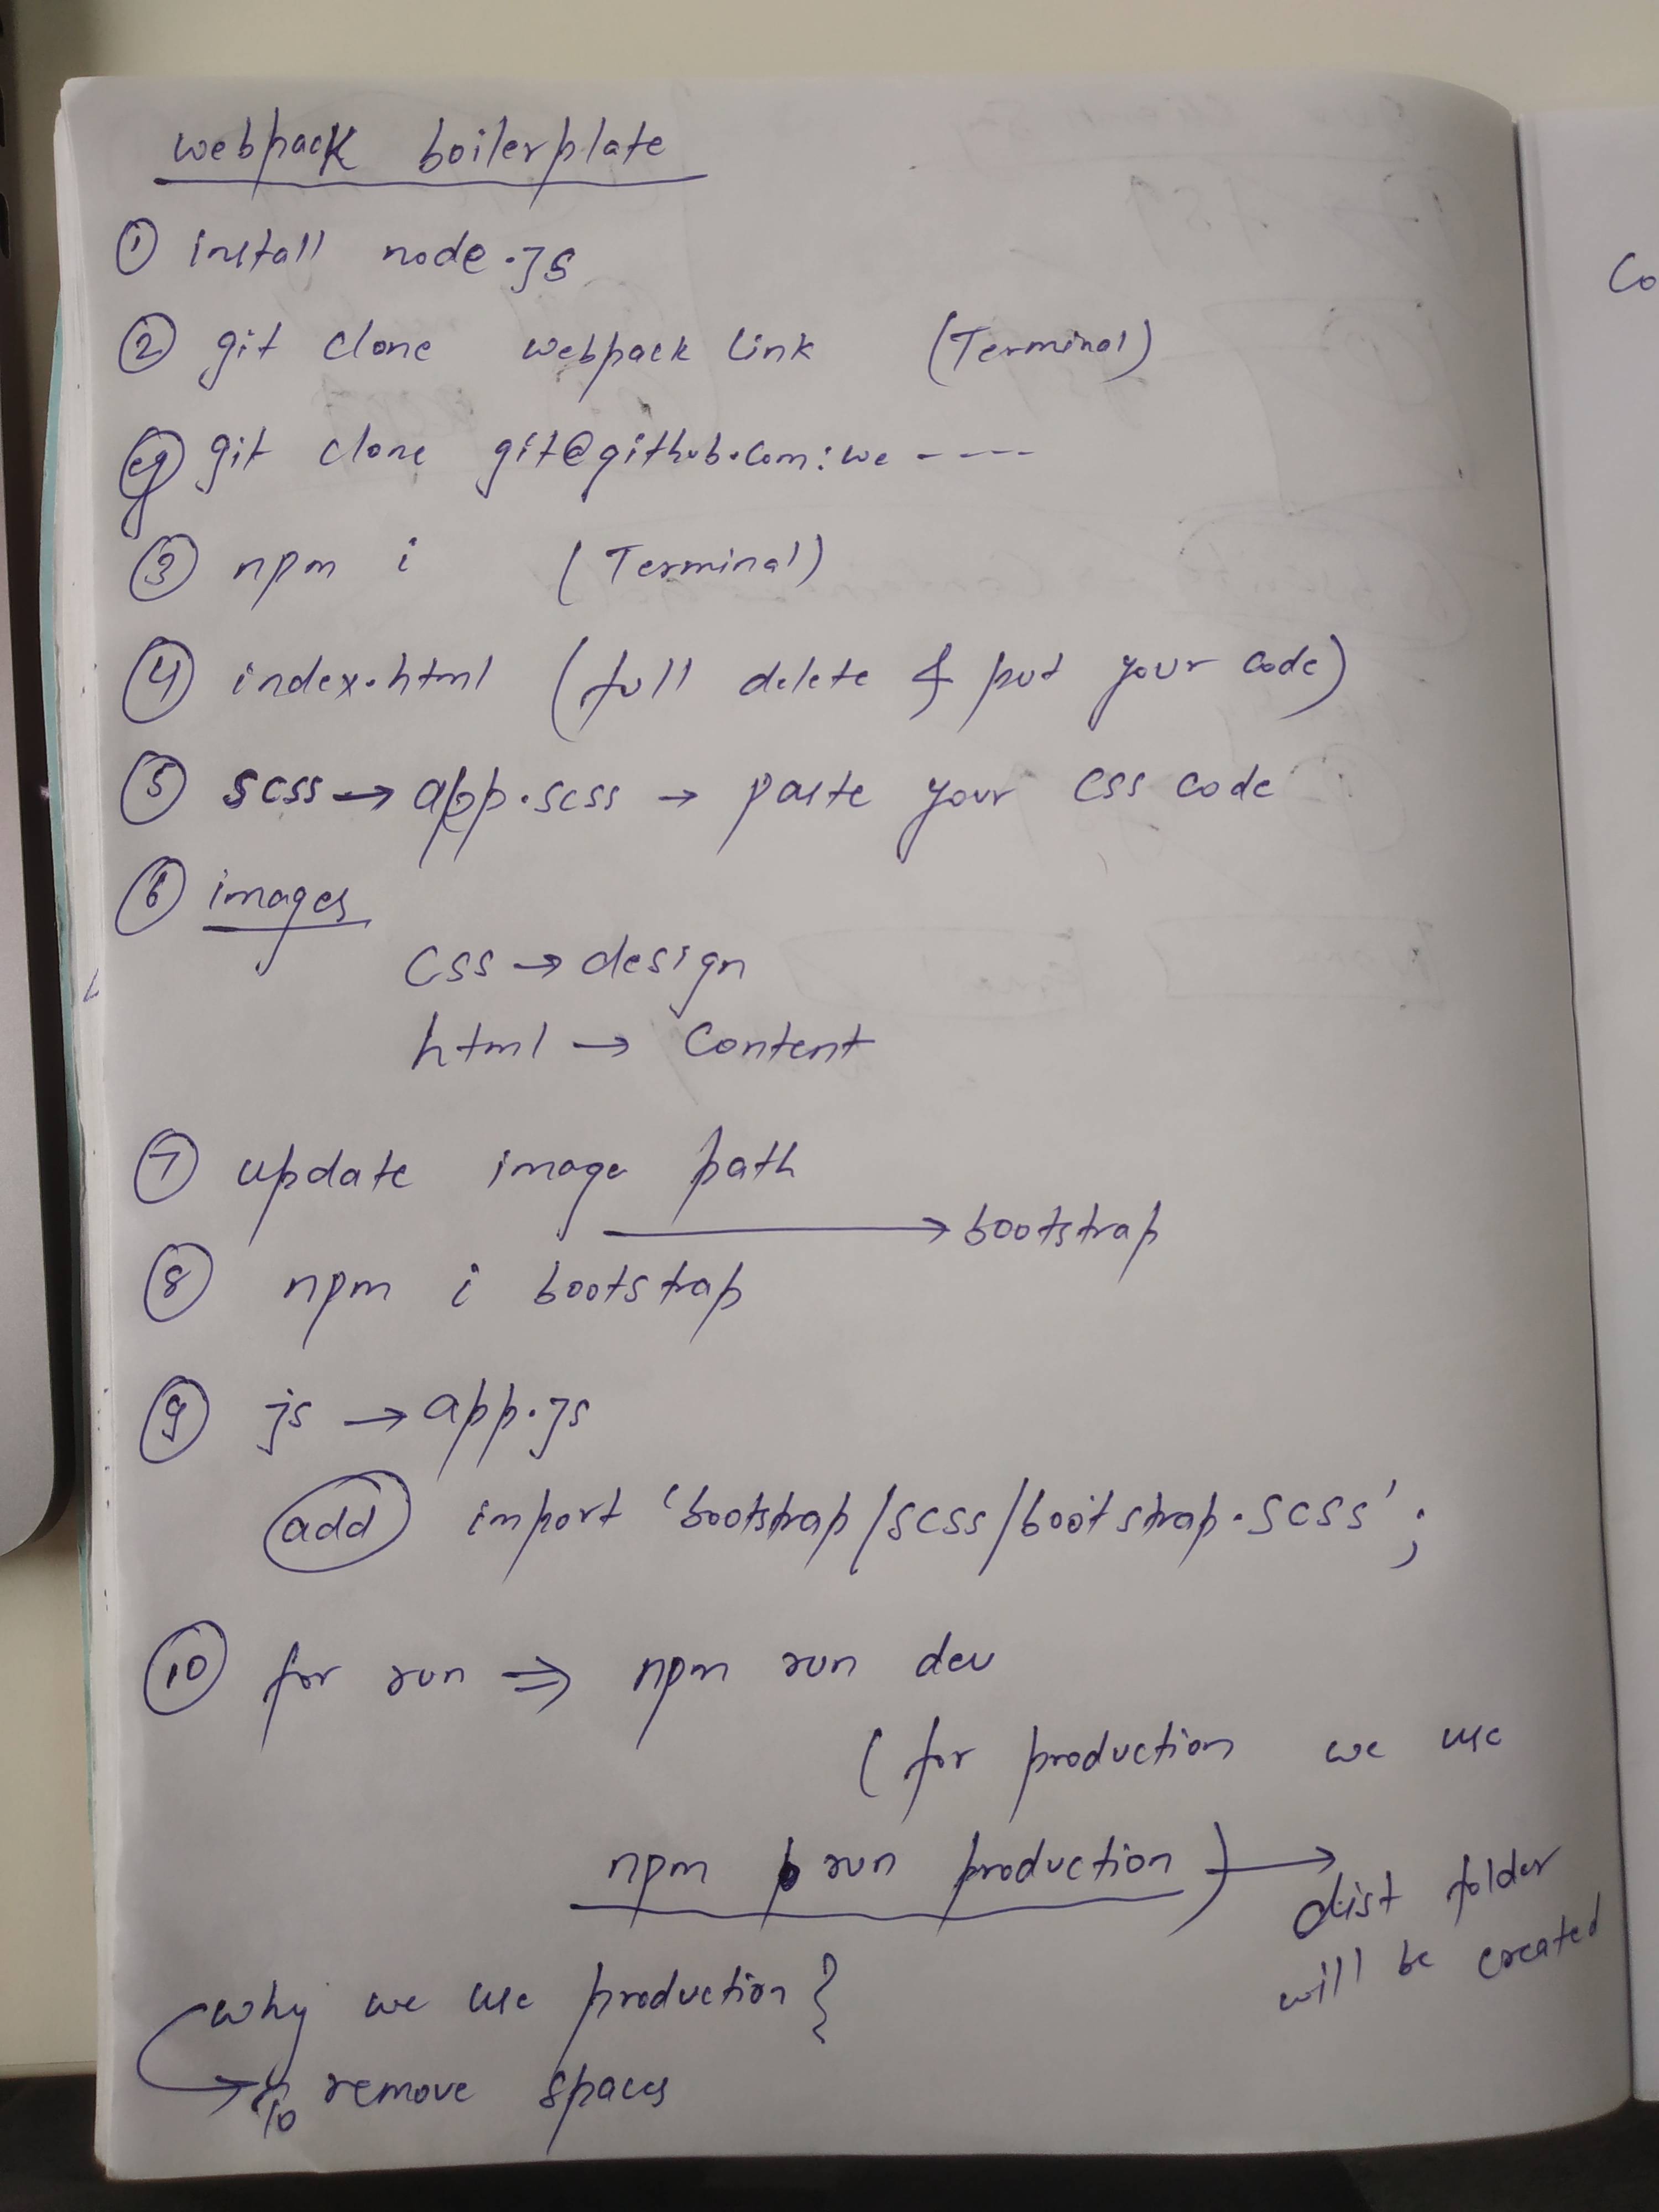 webpack boilerplate
① install node.js
② git clone webpack link (Terminal)
eg git clone git@github.com:we ----
③ npm i (Terminal)
④ index.html (full delete & put your code)
⑤ scss → app.scss → paste your css code
⑥ images
css → design
html → Content
⑦ update image path
→ bootstrap
⑧ npm i bootstrap
⑨ js → app.js
add import 'bootstrap/scss/bootstrap.scss';
⑩ for run ⇒ npm run dev
(for production we use
npm run production) →
dist folder
will be created
why we use production?
→ to remove spaces
Co